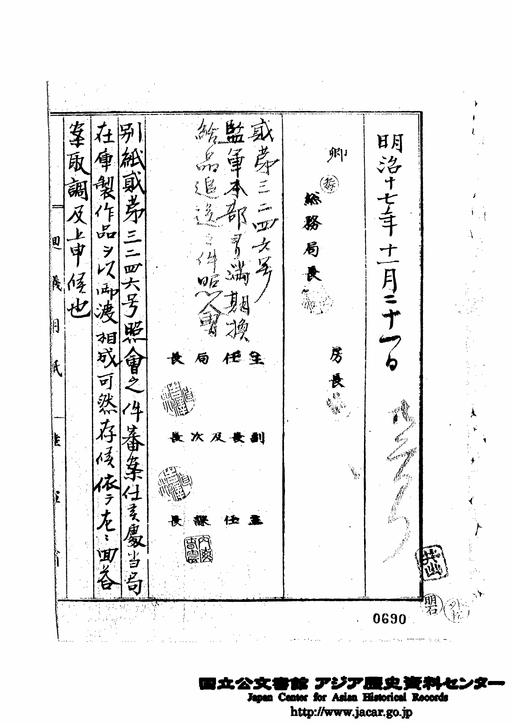 明治十七年十一月二十一日
卿
総務局長
房長
貳第三二四六号
監軍本部ヨリ満期換
給品追送之件照会
主任局長
副長及次長
主任課長
別紙貳第三二四六号照會之件審案仕候處当局
在庫製作品ヲ以御渡相成可然存候依テ左ニ回答
案取調及上申候也
廻議用紙
陸軍省
0690
国立公文書館 アジア歴史資料センター
Japan Center for Asian Historical Records
http://www.jacar.go.jp